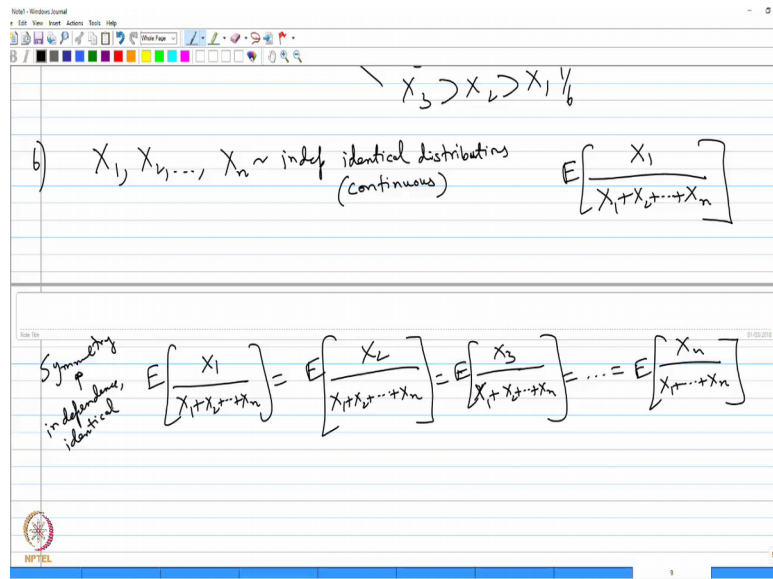 Note1 - Windows Journal
Edit View Insert Actions Tools Help
Whole Page
B I
X₃ > X₂ > X₁ 1/6
6) X₁, X₂, ..., Xₙ ~ indep identical distributions E[X₁/(X₁+X₂+...+Xₙ)]
(continuous)
Note Title 01-03-2018
Symmetry
independence,
identical
E[X₁/(X₁+X₂+...+Xₙ)] = E[X₂/(X₁+X₂+...+Xₙ)] = E[X₃/(X₁+X₂+...+Xₙ)] = ... = E[Xₙ/(X₁+...+Xₙ)]
NPTEL
9